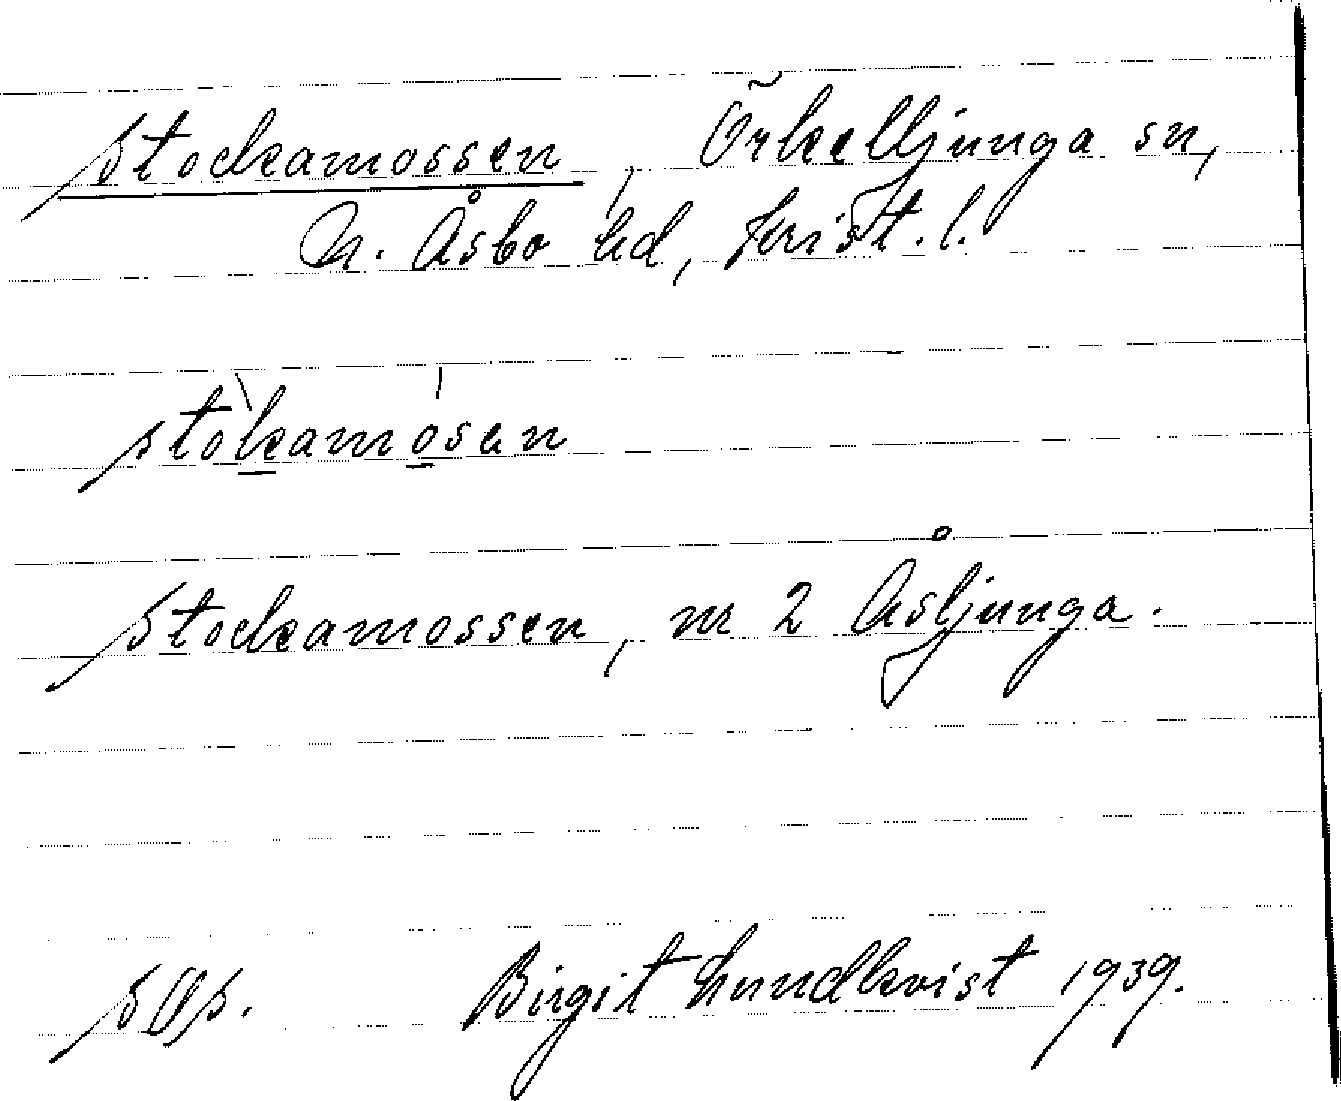 Stockamossen, Örkelljunga sn,
N. Åsbo hd, Krist. l.
stòkamósen
Stockamossen, nr 2 Åsljunga.
SOS.
Birgit Lundkvist 1939.